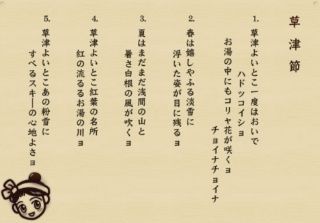 草津節
1. 草津よいとこ一度はおいで
ハドッコイショ
お湯の中にもコリャ花が咲くョ
チョイナチョイナ
2. 春は嬉しやふる淡雪に
浮いた姿が目に残るョ
3. 夏はまだまだ浅間の山と
暑さ白根の風が吹くョ
4. 草津よいとこ紅葉の名所
紅の流るるお湯の川ョ
5. 草津よいとこあの粉雪に
すべるスキーの心地よさョ